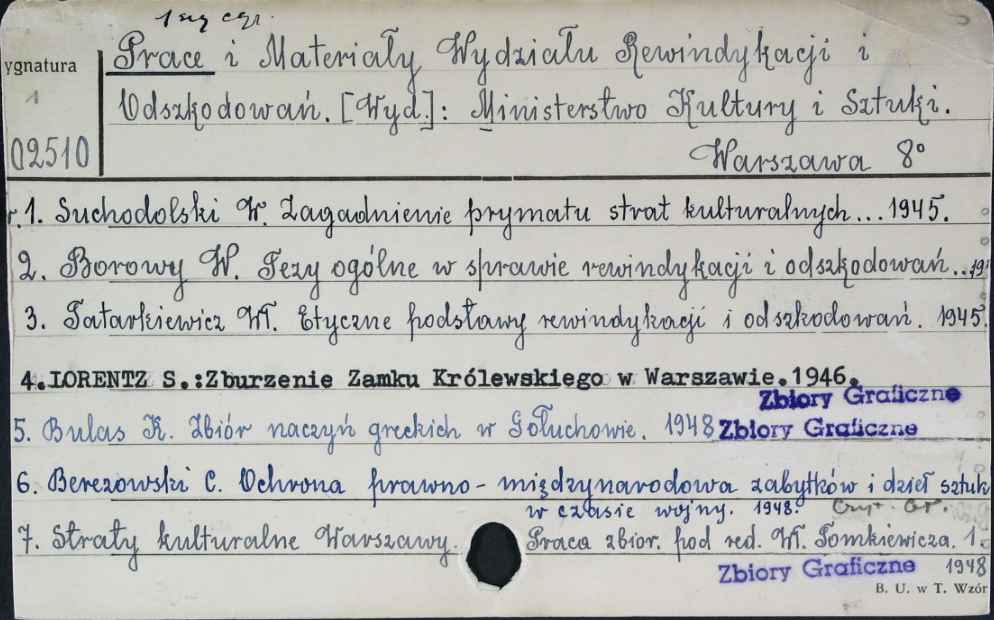 1 sug czr.
ygnatura
1
02510
Prace i Materiały Wydziału Rewindykacji i
Odszkodowań. [Wyd.]: Ministerstwo Kultury i Sztuki.
Warszawa 8°
r. 1. Suchodolski W. Zagadnienie prymatu strat kulturalnych... 1945.
2. Borowy W. Tezy ogólne w sprawie rewindykacji i odszkodowań... 19
3. Tatarkiewicz Wł. Etyczne podstawy rewindykacji i odszkodowań. 1945.
4. LORENTZ S.:Zburzenie Zamku Królewskiego w Warszawie.1946.
Zbiory Graficzne
5. Bulas K. Zbiór naczyń greckich w Gołuchowie. 1948 Zbiory Graficzne
6. Berezowski C. Ochrona prawno - międzynarodowa zabytków i dzieł sztuk
w czasie wojny. 1948.
7. Straty kulturalne Warszawy. Praca zbior. pod red. Wł. Tomkiewicza. 1.
Zbiory Graficzne 1948
B. U. w T. Wzór